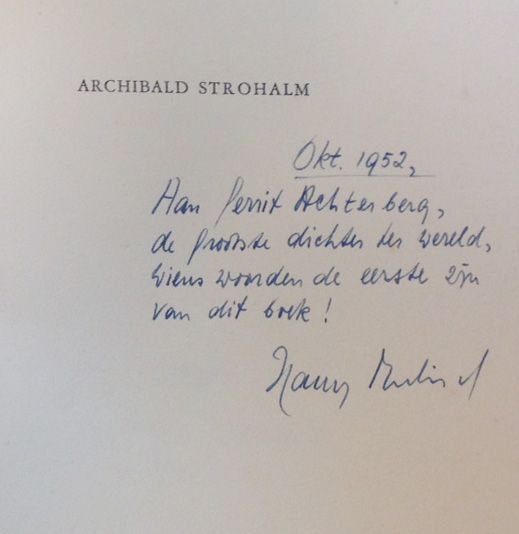 ARCHIBALD STROHALM
Okt. 1952,
Aan Gerrit Achterberg,
de grootste dichter ter wereld,
wiens woorden de eerste zijn
van dit boek!
Harry Mulisch